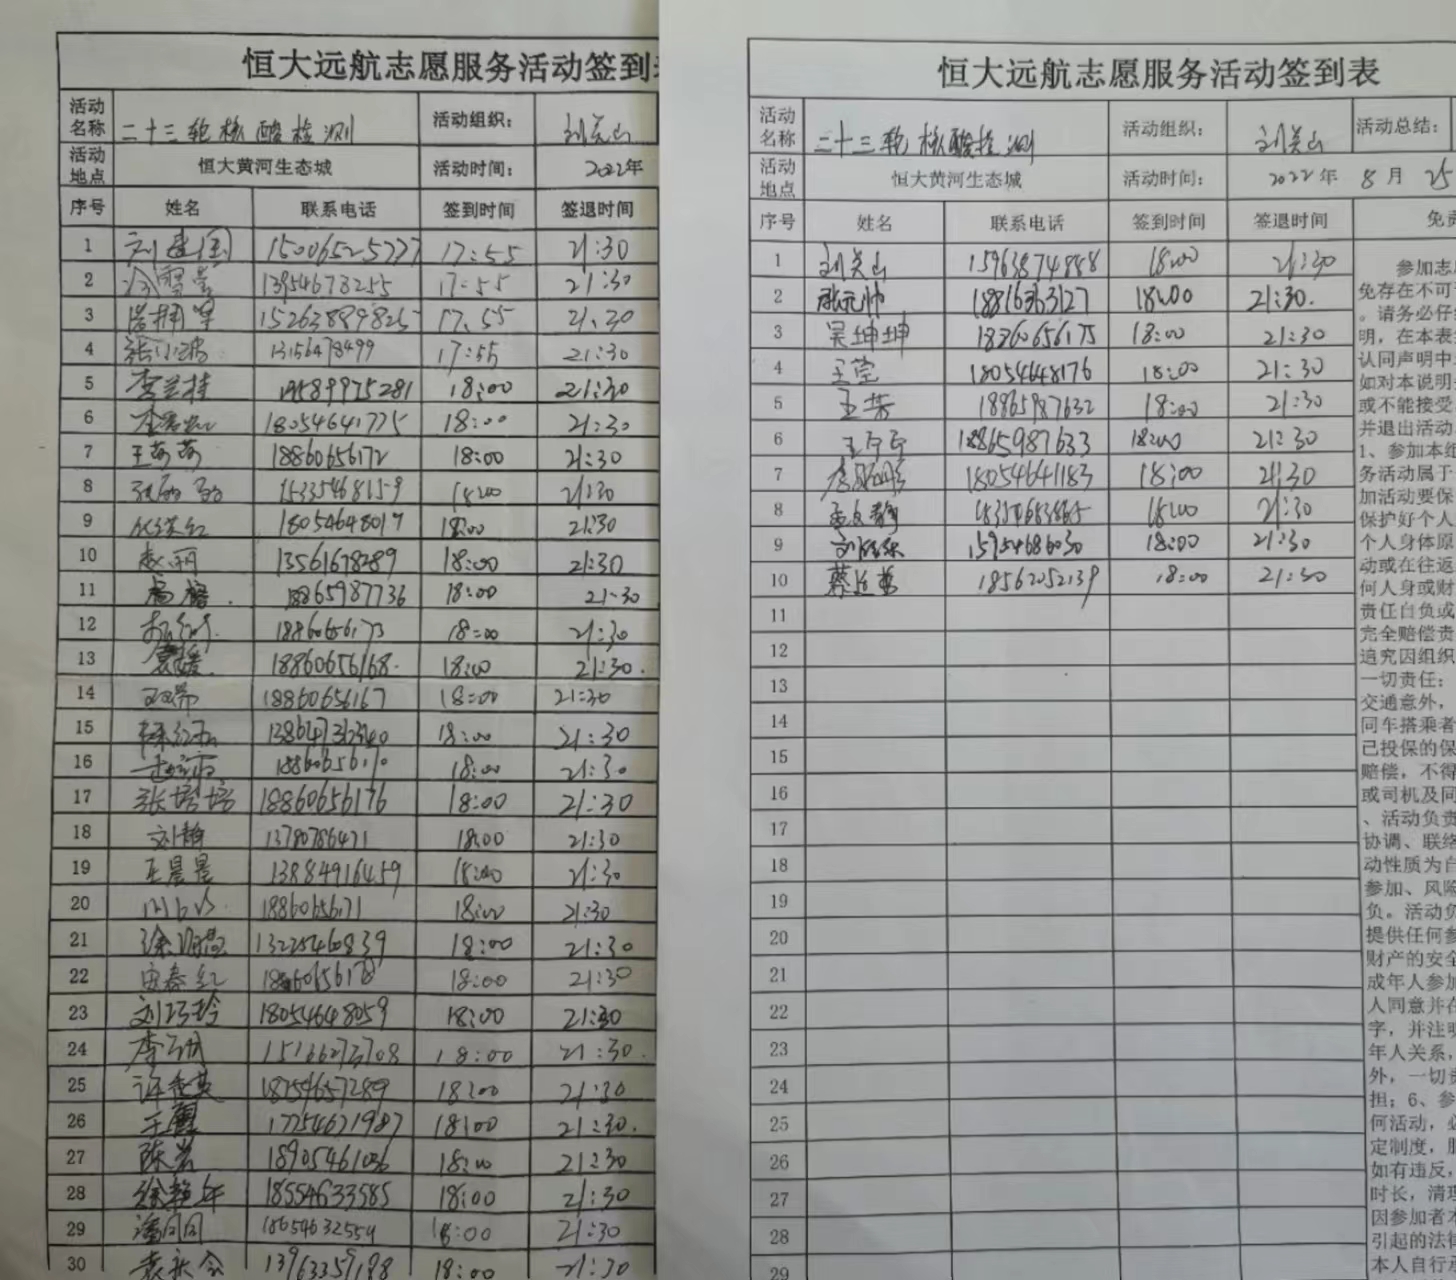 恒大远航志愿服务活动签到
活动名称 二十三轮核酸检测 活动组织： 刘关山
活动地点 恒大黄河生态城 活动时间： 2022年
序号 姓名 联系电话 签到时间 签退时间
1 刘建国 15006525777 17:55 21:30
2 13954673255 17:55 21:30
3 15263889825 17:55 21:30
4 张小瑞 13156478499 17:55 21:30
5 李兰桂 19589975281 18:00 21:30
6 18054641775 18:00 21:30
7 王莉莉 18860656172 18:00 21:30
8 15335468159 18:00 21:30
9 18054648017 18:00 21:30
10 赵丽 13561678289 18:00 21:30
11 杨榕 18865987736 18:00 21:30
12 18860656173 18:00 21:30
13 袁媛 18860656168 18:00 21:30
14 18860656167 18:00 21:30
15 18:00 21:30
16 18860656170 18:00 21:30
17 张培培 18860656176 18:00 21:30
18 刘静 13780786471 18:00 21:30
19 王晨晨 13884916459 18:00 21:30
20 18860656171 18:00 21:30
21 13225460839 18:00 21:30
22 18860656178 18:00 21:30
23 刘巧玲 18054648059 18:00 21:30
24 15166273708 18:00 21:30
25 许桂英 18759657289 18:00 21:30
26 17754671987 18:00 21:30
27 陈岩 18905461036 18:00 21:30
28 徐艳年 18554633585 18:00 21:30
29 潘同同 18654632554 18:00 21:30
30 袁永会 13963359188 18:00 21:30
恒大远航志愿服务活动签到表
活动名称 二十三轮核酸检测 活动组织： 刘关山 活动总结：
活动地点 恒大黄河生态城 活动时间： 2022年 8月 25
序号 姓名 联系电话 签到时间 签退时间 免责
1 刘关山 15963874888 18:00 21:30
2 张元帅 18:00 21:30
3 吴坤坤 18860656175 18:00 21:30
4 王莹 18054648176 18:00 21:30
5 王芳 18865987632 18:00 21:30
6 王宁宁 18865987633 18:00 21:30
7 18054641183 18:00 21:30
8 孟文静 18:00 21:30
9 15954686030 18:00 21:30
10 蔡延英 18562052139 18:00 21:30
11
12
13
14
15
16
17
18
19
20
21
22
23
24
25
26
27
28
29
参加志愿
免存在不可
。请务必仔细
明，在本表
认同声明中
如对本说明
或不能接受
并退出活动
1、参加本组
务活动属于
加活动要保
保护好个人
个人身体原
动或在往返
何人身或财
责任自负或
完全赔偿责
追究因组织
一切责任：
交通意外，
同车搭乘者
已投保的保
赔偿，不得
或司机及同
、活动负责
协调、联络
动性质为自
参加、风险
负。活动负
提供任何参
财产的安全
成年人参加
人同意并在
字，并注明
年人关系，
外，一切责
担；6、参
何活动，必
定制度，服
如有违反，
时长，清理
因参加者本
引起的法律
本人自行承